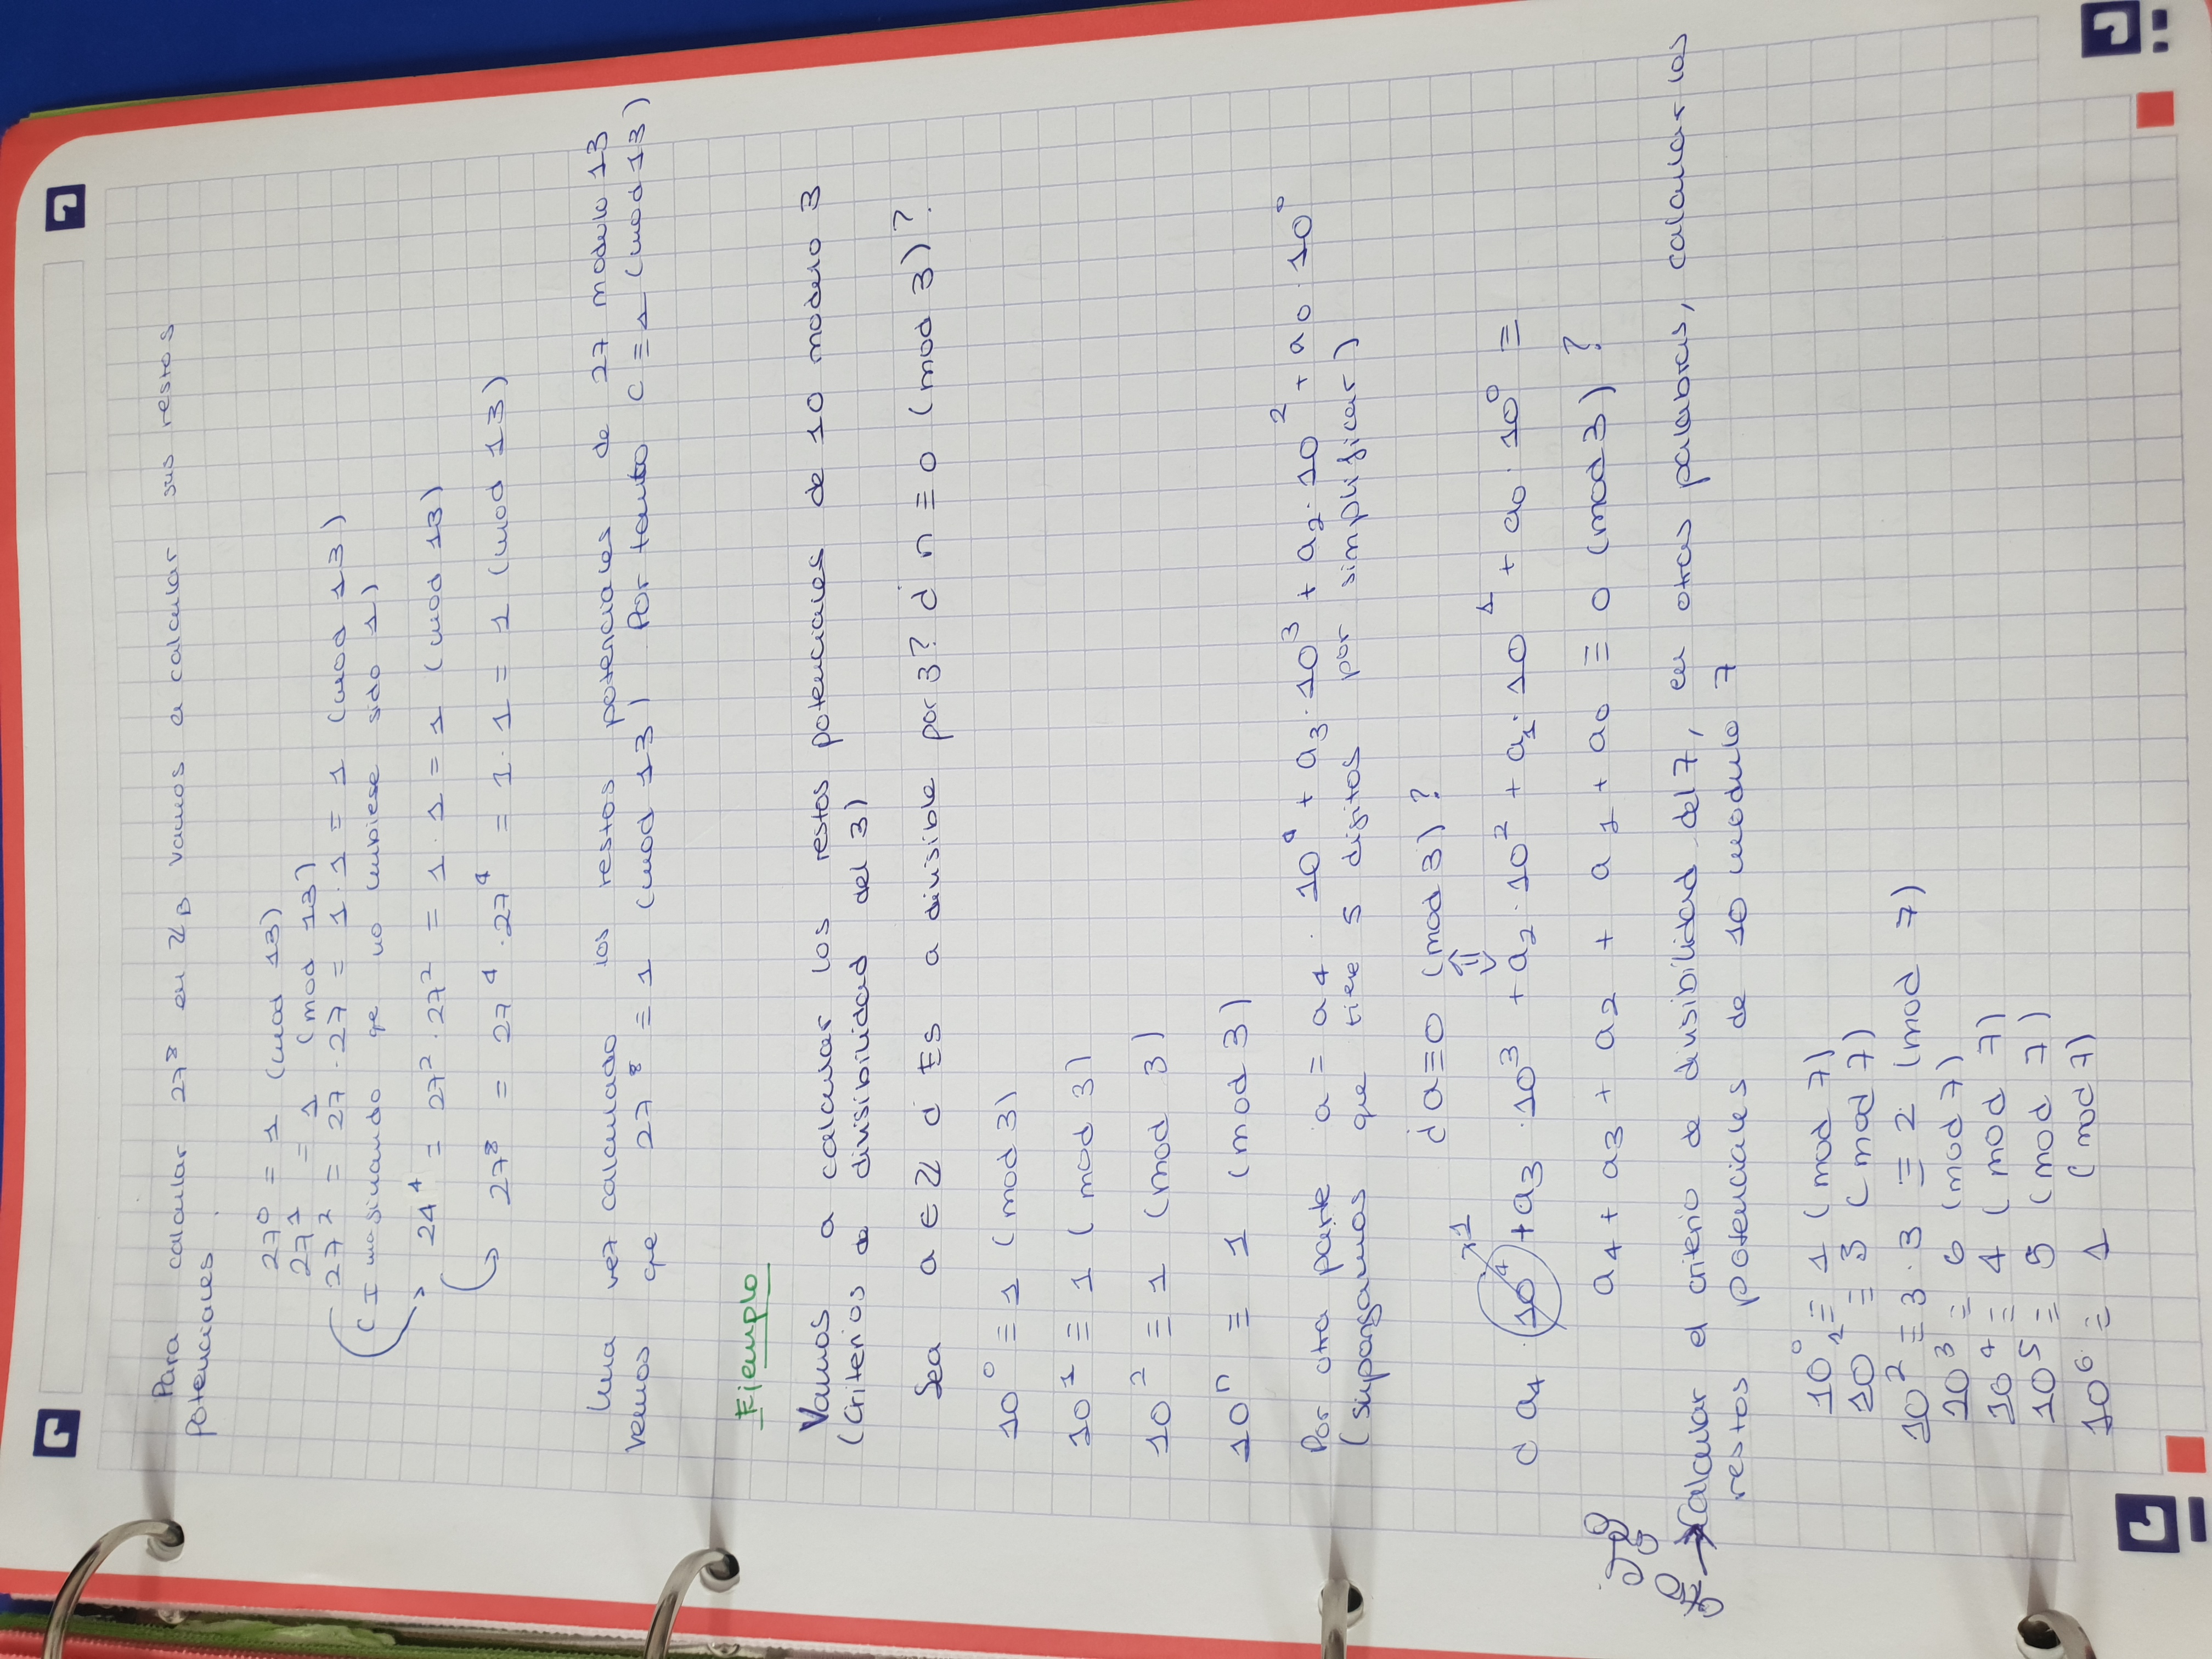 Para calcular 27⁸ en ℤ₁₃ vamos a calcular sus restos
potenciales.
27⁰ = 1 (mod 13)
27¹ = 1 (mod 13)
27² = 27 · 27 = 1 · 1 = 1 (mod 13)
(Imaginando qe no hubiese sido 1)
24⁴ = 27² · 27² = 1 · 1 = 1 (mod 13)
27⁸ = 27⁴ · 27⁴ = 1 · 1 = 1 (mod 13)
Una vez calculado los restos potenciales de 27 modulo 13
vemos qe 27⁸ ≡ 1 (mod 13) Por tanto C ≡ 1 (mod 13)
Ejemplo
Vamos a calcular los restos potenciales de 10 modulo 3
(Criterios de divisibilidad del 3)
Sea a ∈ ℤ ¿ Es a divisible por 3? ¿ n ≡ 0 (mod 3)?
10⁰ ≡ 1 (mod 3)
10¹ ≡ 1 (mod 3)
10² ≡ 1 (mod 3)
10ⁿ ≡ 1 (mod 3)
Por otra parte a = a₄ · 10⁴ + a₃ · 10³ + a₂ · 10² + a0 · 10⁰
(supongamos que tiene 5 dígitos por simplificar)
¿ a ≡ 0 (mod 3)?
⇕
¿ a₄ · 10⁴ + a₃ · 10³ + a₂ · 10² + a₁ · 10¹ + a₀ · 10⁰ ≡
a₄ + a₃ + a₂ + a₁ + a₀ ≡ 0 (mod 3)?
→ Calcular el criterio de divisibilidad del 7, en otras palabras, calcular los
restos potenciales de 10 modulo 7
10⁰ ≡ 1 (mod 7)
10¹ ≡ 3 (mod 7)
10² ≡ 3 · 3 ≡ 2 (mod 7)
10³ ≡ 6 (mod 7)
10⁴ ≡ 4 (mod 7)
10⁵ ≡ 5 (mod 7)
10⁶ ≡ 1 (mod 7)